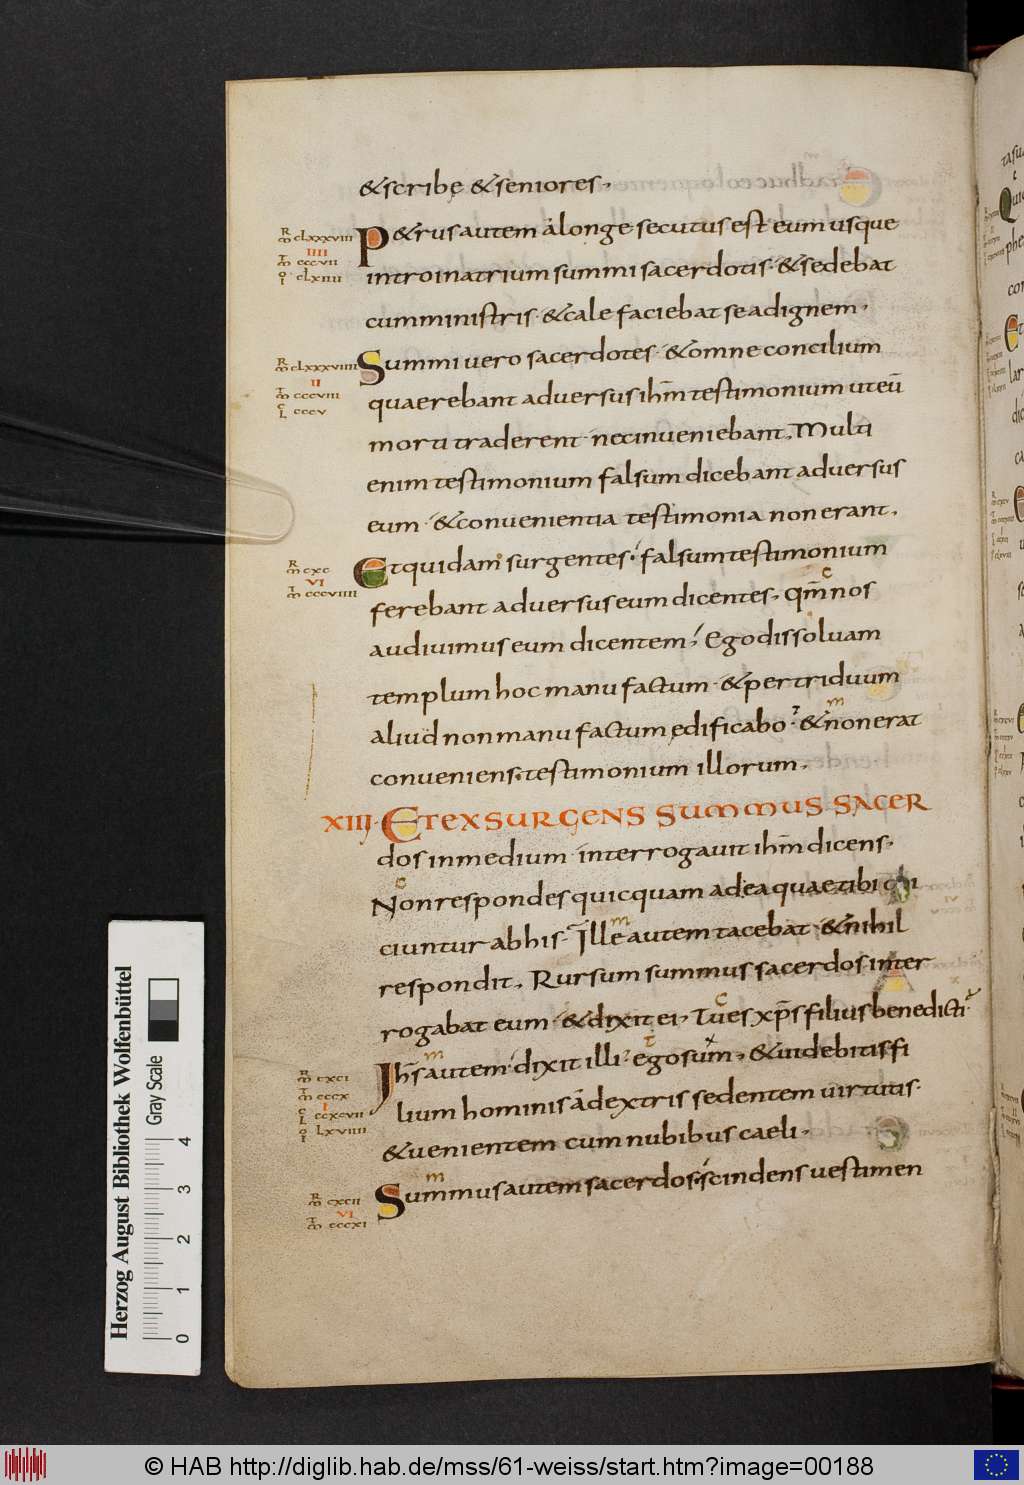 &scribę &seniores.
P&rus autem àlonge secutus est eum usque
intro in atrium summi sacerdotis· &sedebat
cum ministris· &cale faciebat se ad ignem.
Summi uero sacerdotes· &omne concilium
quaerebant aduersus ihm̄ testimonium ut eū
morti traderent· nec inueniebant. Multi
enim testimonium falsum dicebant aduersus
eum· &conuenientia testimonia non erant.
Et quidam surgentes· falsum testimonium
ferebant aduersus eum dicentes. qm̄ nos
audiuimus eum dicentem; Ego dissoluam
templum hoc manu factum· &per triduum
aliud non manu factum ędificabo· &non erat
conueniens· testimonium illorum.
XIII· ET EXSURGENS SUMMUS SACER
dos in medium· interrogauit ihm̄ dicens.
Non respondes quicquam ad ea quae tibi
ciuntur ab his· Ille autem tacebat· &nihil
respondit. Rursum summus sacerdos· inter
rogabat eum· &dixit ei. Tu es xp̄s filius benedicti
Ihs̄ autem· dixit illi· ego sum. &uidebitis fi
lium hominis àdextris sedentem uirtutis·
&uenientem cum nubibus caeli.
Summus autem sacerdos· scindens uestimen
R m̄ clxxxviii
IIII
m̄ cccvii
clxiiii
R m̄ clxxxviiii
II
m̄ cccviii
L cccv
R m̄ cxc
VI
m̄ cccviiii
R m̄ cxci
m̄ cccx
I
L ccxcvii
lxviiii
R m̄ cxcii
VI
m̄ cccxi
Herzog August Bibliothek Wolfenbüttel
Gray Scale
0 1 2 3 4
© HAB http://diglib.hab.de/mss/61-weiss/start.htm?image=00188